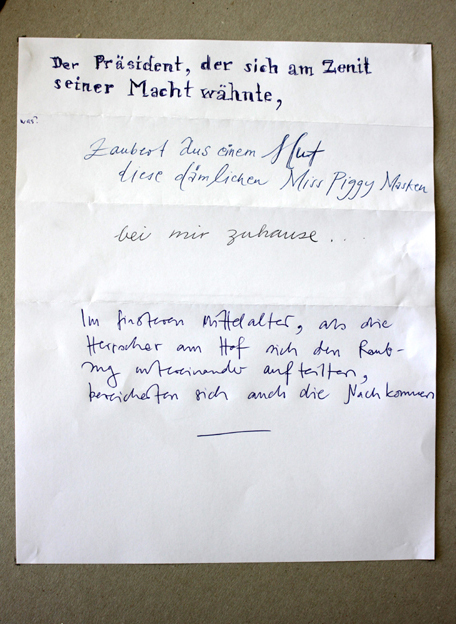 Der Präsident, der sich am Zenit
seiner Macht wähnte,
was?
Zaubert aus einem Hut
diese dämlichen Miss Piggy Masken
bei mir zuhause...
Im finsteren Mittelalter, als die
Herrscher am Hof sich den Raub-
zug untereinander aufteilten,
bereicherten sich auch die Nachkommen